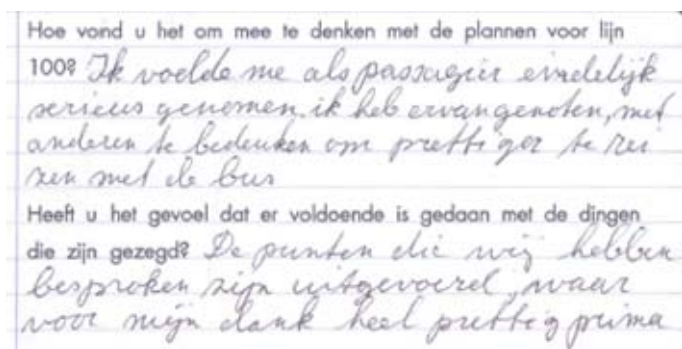 Hoe vond u het om mee te denken met de plannen voor lijn
100? Ik voelde me als passagier eindelijk
serieus genomen. ik heb ervan genoten, met
anderen te bedenken om prettiger te rei
zen met de bus
Heeft u het gevoel dat er voldoende is gedaan met de dingen
die zijn gezegd? De punten die wij hebben
besproken zijn uitgevoerd, waar
voor mijn dank heel prettig prima